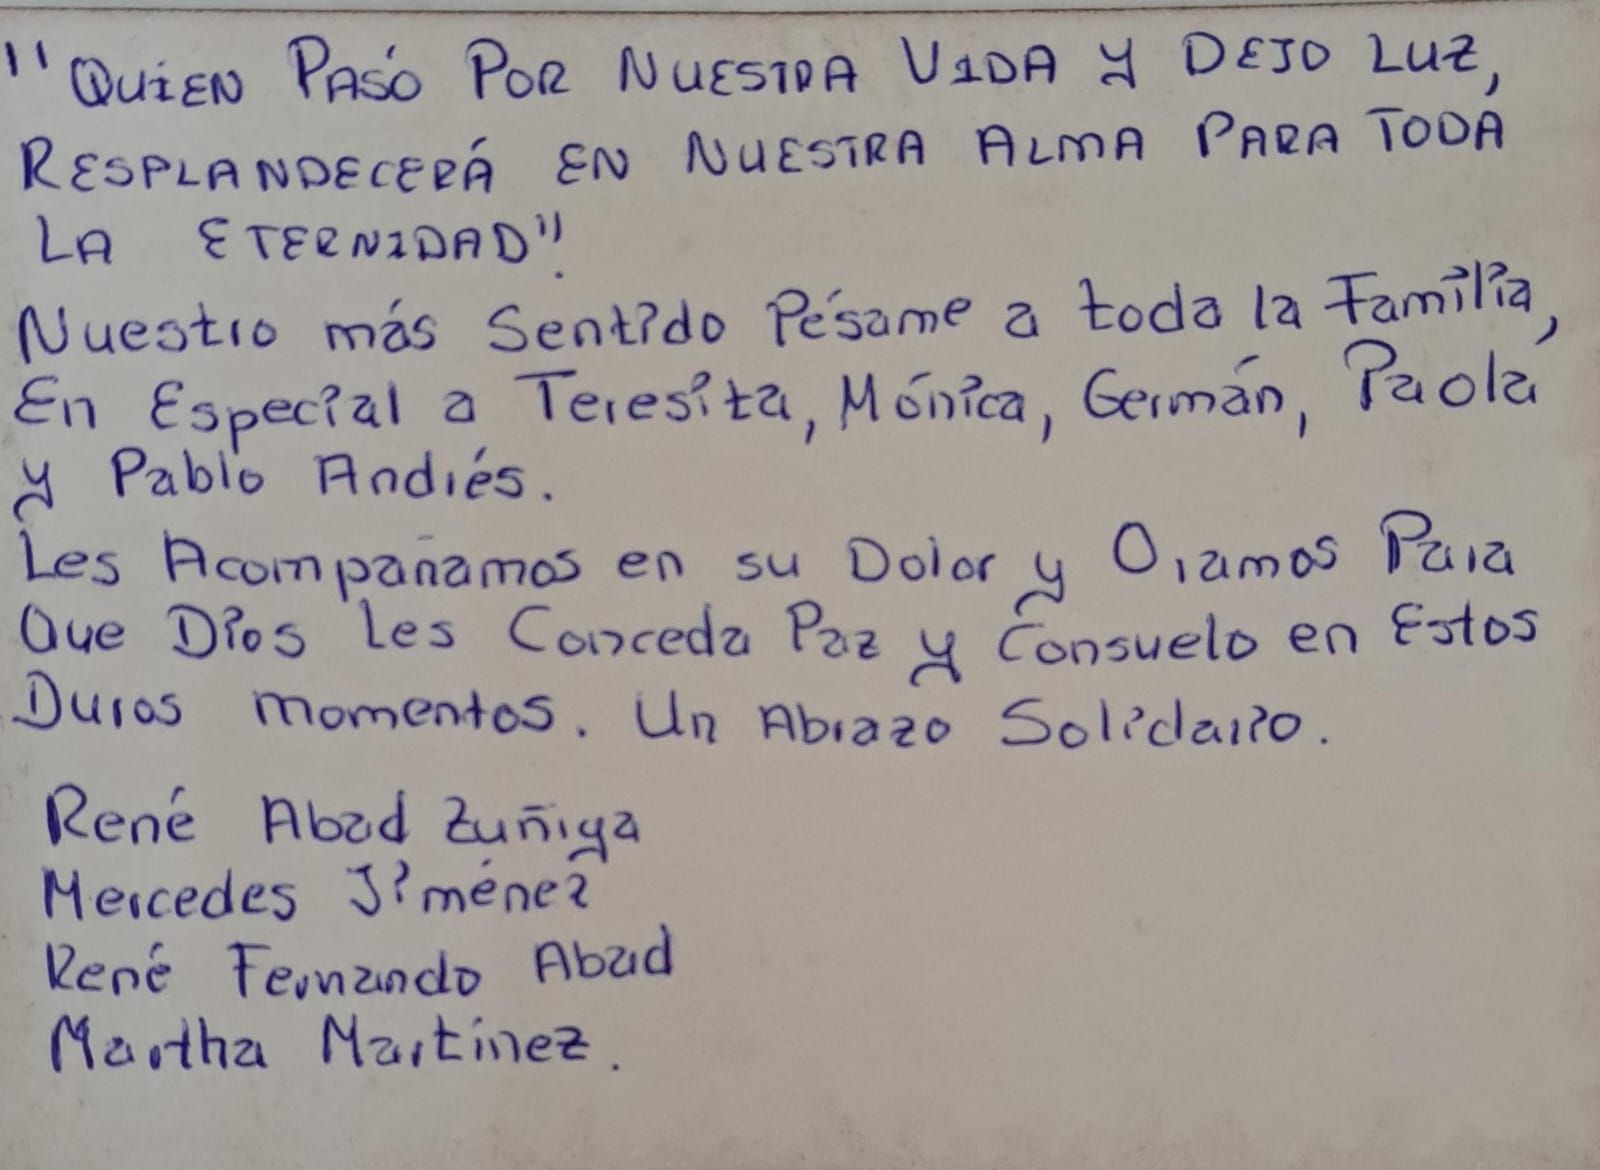 "QUIEN PASÓ POR NUESTRA VIDA Y DEJO LUZ,
RESPLANDECERÁ EN NUESTRA ALMA PARA TODA
LA ETERNIDAD".
Nuestro más Sentido Pésame a toda la Familia,
En Especial a Teresita, Mónica, Germán, Paola
y Pablo Andrés.
Les Acompañamos en su Dolor y Oramos Para
Que Dios Les Conceda Paz y Consuelo en Estos
Duros momentos. Un Abrazo Solidario.
René Abad Zuñiga
Mercedes Jiménez
René Fernando Abad
Martha Martínez.